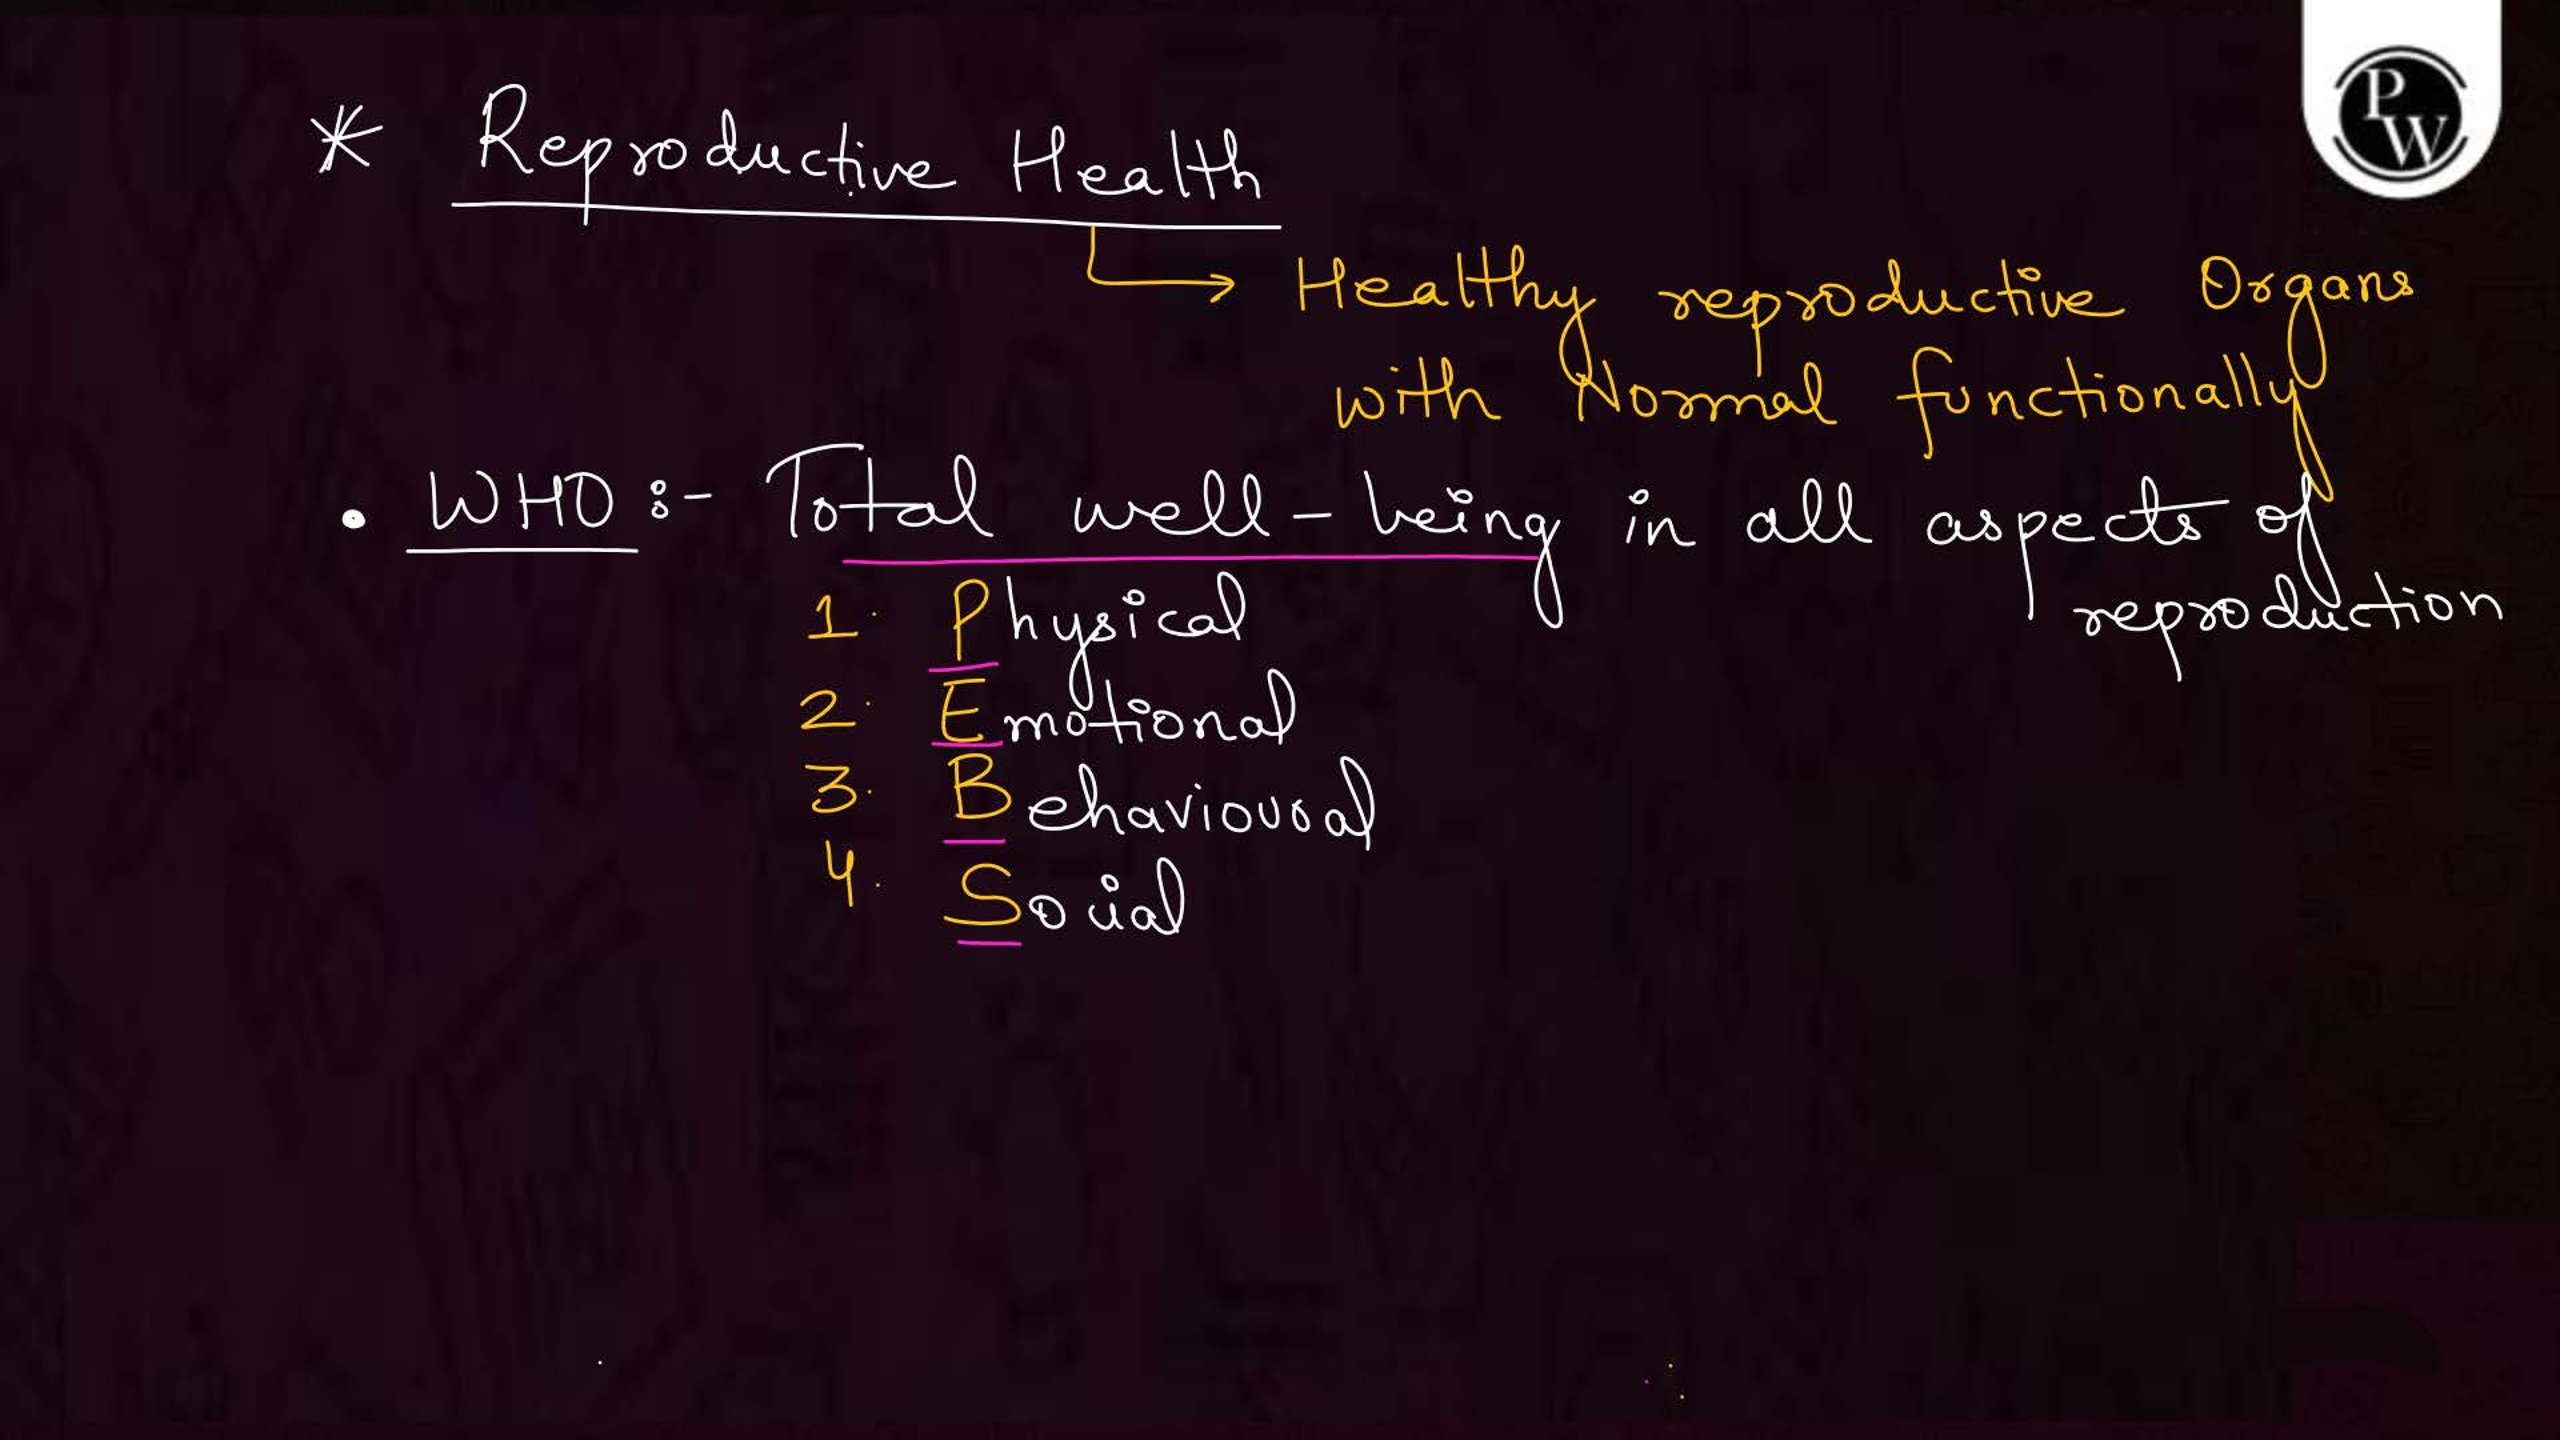 PW
* Reproductive Health
→ Healthy reproductive Organs
with Normal functionally
• WHO :- Total well-being in all aspects of
reproduction
1. Physical
2. Emotional
3. Behavioural
4. Social